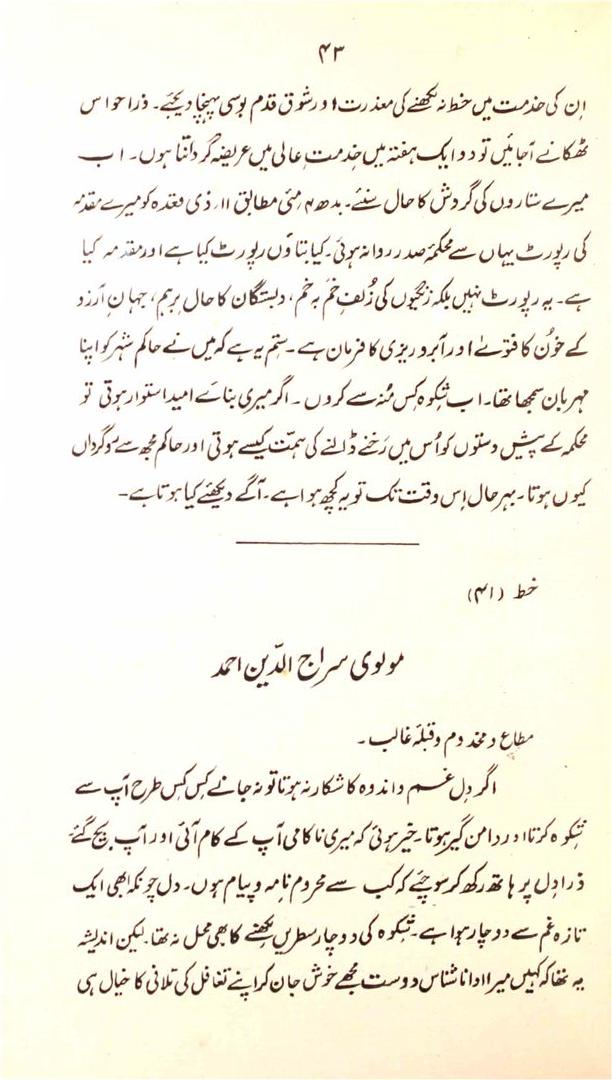 ۴۳
اِن کی خدمت میں خط نہ لکھنے کی معذرت اور شوق قدم بوسی پہنچا دیجئے۔ ذرا حواس
ٹھکانے آجائیں تو دو ایک ہفتہ میں خدمتِ عالی میں عریضہ گردانتا ہوں۔ اب
میرے ستاروں کی گردش کا حال سنئے۔ بدھ ۴؍ مئی مطابق ۱۱؍ ذی قعدہ کو میرے مقدمہ
کی رپورٹ یہاں سے محکمۂ صدر روانہ ہوئی۔ کیا بتاؤں رپورٹ کیا ہے اور مقدمہ کیا
ہے۔ یہ رپورٹ نہیں بلکہ زنگیوں کی زُلفِ خَم بہ خَم، دبستگان کا حال برہم، جہانِ آرزو
کے خوُن کا فتوےٰ اور آبروریزی کا فرمان ہے۔ ستم یہ ہے کہ میں نے حاکم شہر کو اپنا
مہربان سمجھا تھا۔ اب شکوہ کس مُنہ سے کروں۔ اگر میری بنائے امید استوار ہوتی تو
محکمہ کے پیش دستوں کو اُس میں رَخنے ڈالنے کی ہمّت کیسے ہوتی اور حاکم مجھ سے سوگرداں
کیوں ہوتا۔ بہرحال اِس وقت تک تو یہ کچھ ہوا ہے۔ آگے دیکھئے کیا ہوتا ہے۔
خط (۴۱)
مولوی سراج الدّین احمد
مطاع و مخدوم و قبلۂ غالب۔
اگر دِل غم و اندوہ کا شکار نہ ہوتا تو نہ جانے کس کس طرح آپ سے
شکوہ کرتا اور دامن گیر ہوتا۔ خیر ہوئی کہ میری ناکامی آپ کے کام آئی اور آپ بچ گئے
ذرا دِل پر ہاتھ رکھ کر سوچئے کہ کب سے محروم نامہ و پیام ہوں۔ دل چونکہ ابھی ایک
تازہ غم سے دوچار ہوا ہے۔ شکوہ کی دو چار سطریں لکھنے کا بھی محل نہ تھا۔ لیکن اندیشہ
یہ تھا کہ کہیں میرا ادا ناشناس دوست مجھے خوش جان کر اپنے تغافل کی تلافی کا خیال ہی